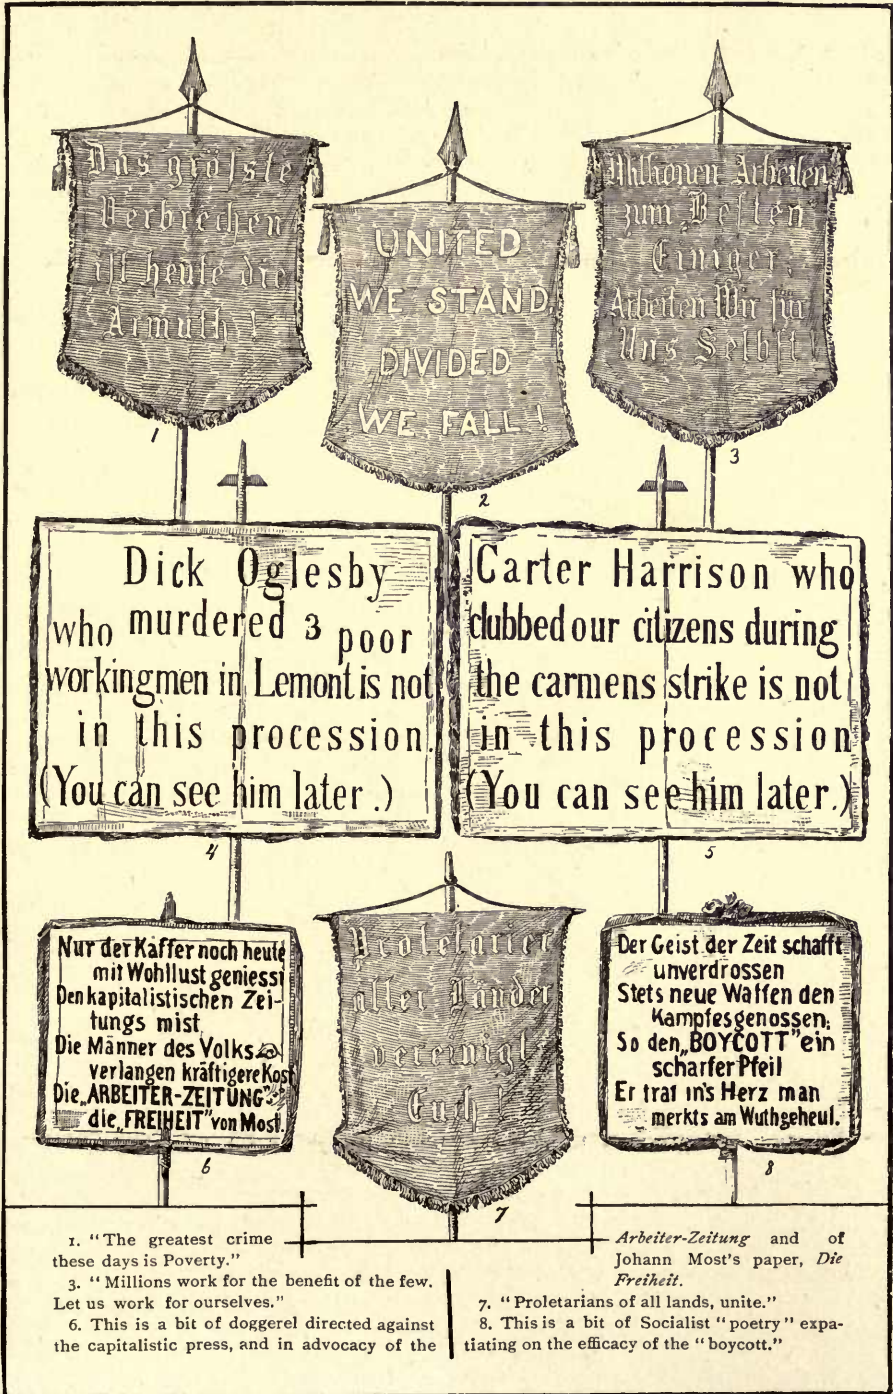 Das gröſste
Verbrechen
iſt heute die
Armuth!
1
UNITED
WE STAND,
DIVIDED
WE FALL!
2
Millionen Arbeiten
zum „Beſten“
Einiger;
Arbeiten Wir für
Uns Selbſt!
3
Dick Oglesby
who murdered 3 poor
workingmen in Lemont is not
in this procession.
(You can see him later.)
4
Carter Harrison who
clubbed our citizens during
the carmens strike is not
in this procession
(You can see him later.)
5
Nur der Kaffer noch heute
mit Wohllust geniesst
Den kapitalistischen Zei-
tungs mist
Die Männer des Volks
verlangen kräftigere Kost
Die „ARBEITER-ZEITUNG“
die „FREIHEIT“ von Most.
6
Proletarier
aller Länder
vereinigt
Euch!
7
Der Geist der Zeit schafft
unverdrossen
Stets neue Waffen den
Kampfesgenossen;
So den „BOYCOTT“ ein
scharfer Pfeil
Er traf in's Herz man
merkts am Wuthgeheul.
8
1. "The greatest crime
these days is Poverty."
3. "Millions work for the benefit of the few.
Let us work for ourselves."
6. This is a bit of doggerel directed against
the capitalistic press, and in advocacy of the
Arbeiter-Zeitung and of
Johann Most's paper, Die
Freiheit.
7. "Proletarians of all lands, unite."
8. This is a bit of Socialist "poetry" expa-
tiating on the efficacy of the "boycott."